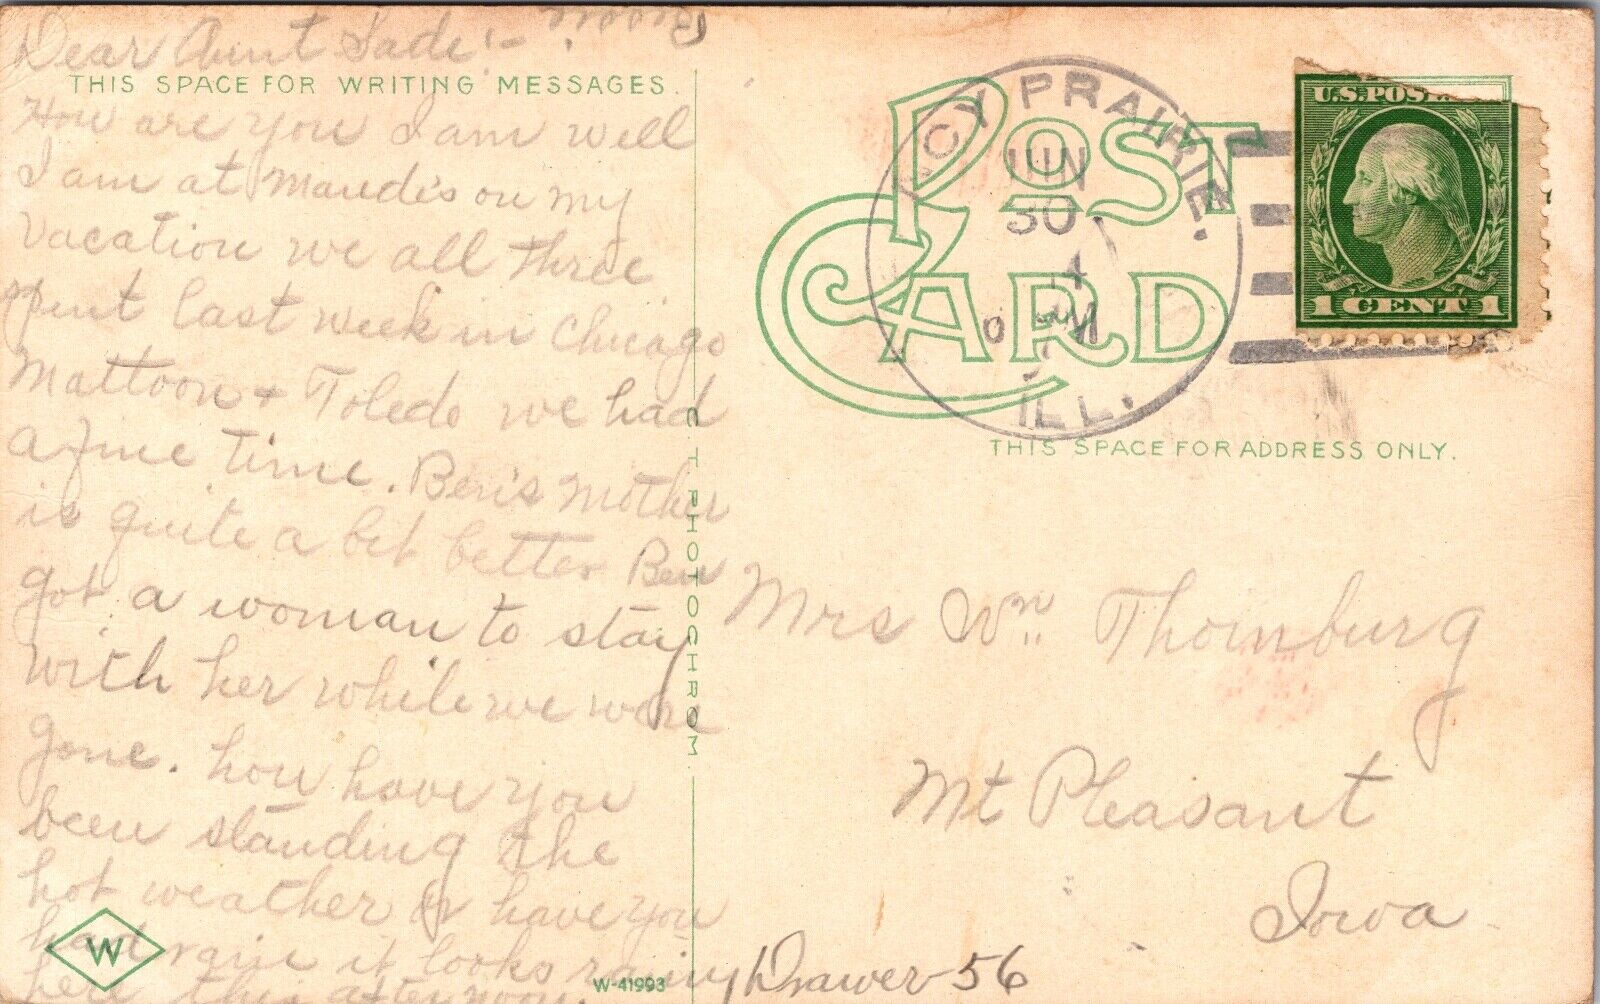 Dear Aunt Sade:-
THIS SPACE FOR WRITING MESSAGES.
How are you I am well
I am at Maude's on my
vacation we all three
spent last week in Chicago
Mattoon + Toledo we had
a fine time. Ben's Mother
is quite a bit better Ben
got a woman to stay
with her while we were
gone. how have you
been standing the
hot weather & have you
had rain it looks rainy
here this afternoon.
W
W-41993
C T PHOTOCHROM
POST CARD
PRAIRIE.
JUN
30
M
ILL.
U.S.POS
1 CENT 1
THIS SPACE FOR ADDRESS ONLY.
Mrs Wm Thornburg
Mt Pleasant
Iowa
Drawer-56